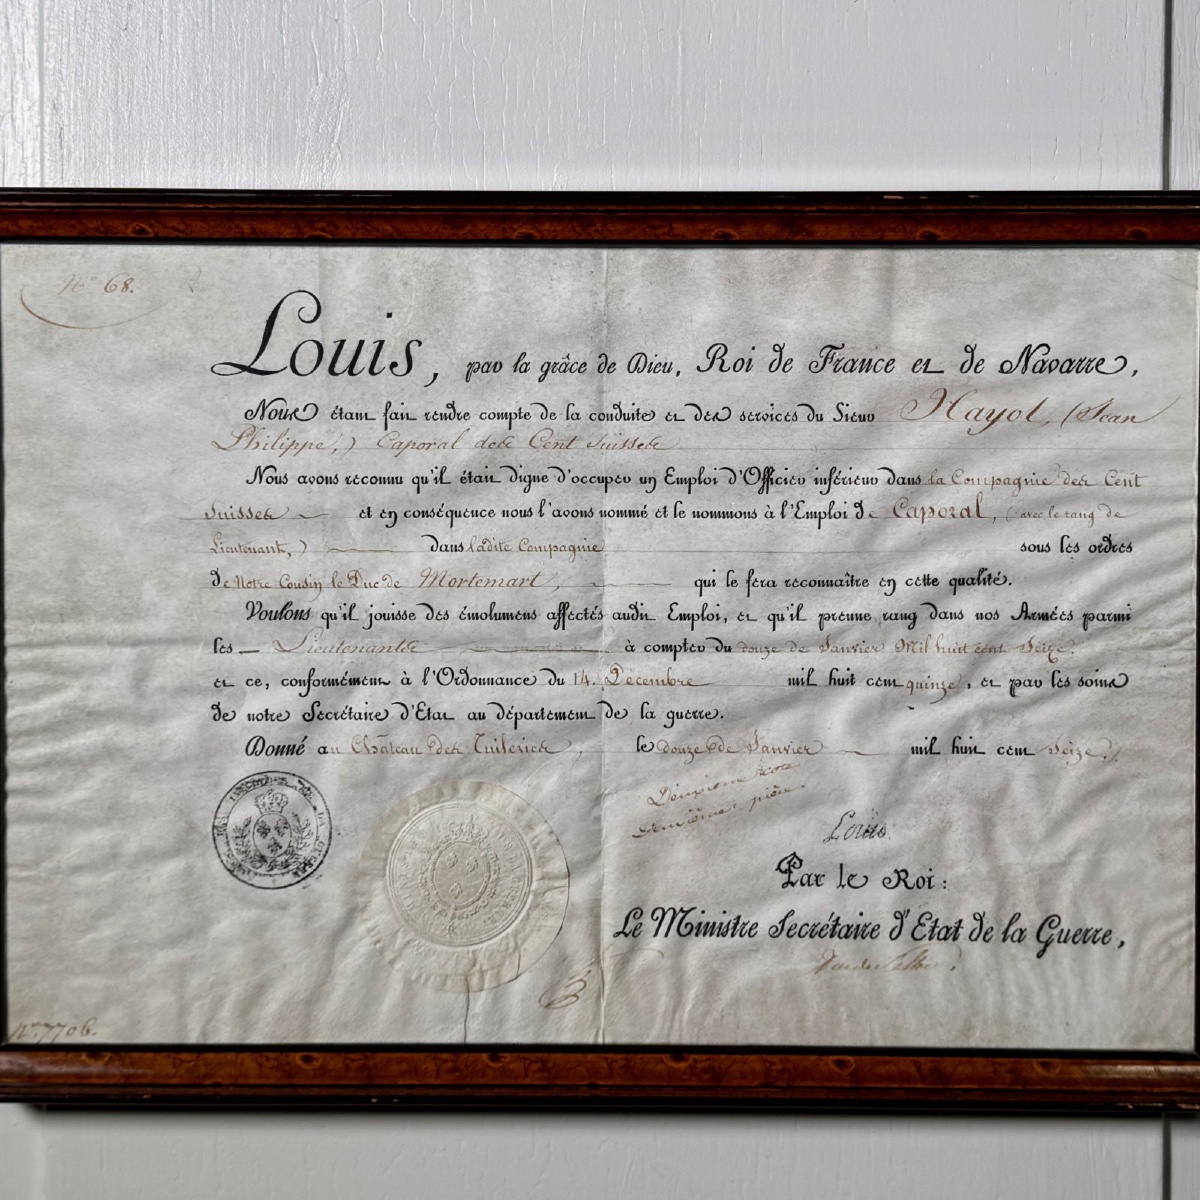 N° 68.
Louis, par la grâce de Dieu, Roi de France et de Navarre,
Nous étant fait rendre compte de la conduite et des services du Sieur Hayot, (Jean
Philippe,) Caporal des Cent Suisses
Nous avons reconnu qu'il était digne d'occuper un Emploi d'Officier inférieur dans la Compagnie des Cent
Suisses et en conséquence nous l'avons nommé et le nommons à l'Emploi de Caporal, (avec le rang de
Lieutenant,) dans ladite Compagnie sous les ordres
de Notre Cousin le Duc de Mortemart, qui le fera reconnaître en cette qualité.
Voulons qu'il jouisse des émolumens affectés audit Emploi, et qu'il prenne rang dans nos Armées parmi
les Lieutenants à compter du douze de Janvier Mil huit cent Seize.
et ce, conformément à l'Ordonnance du 14. Décembre mil huit cent quinze, et par les soins
de notre Secrétaire d'Etat au département de la guerre.
Donné au Château des Tuileries, le douze de Janvier mil huit cent Seize.
Louis
Par le Roi:
Le Ministre Secrétaire d'Etat de la Guerre,
N° 7706.